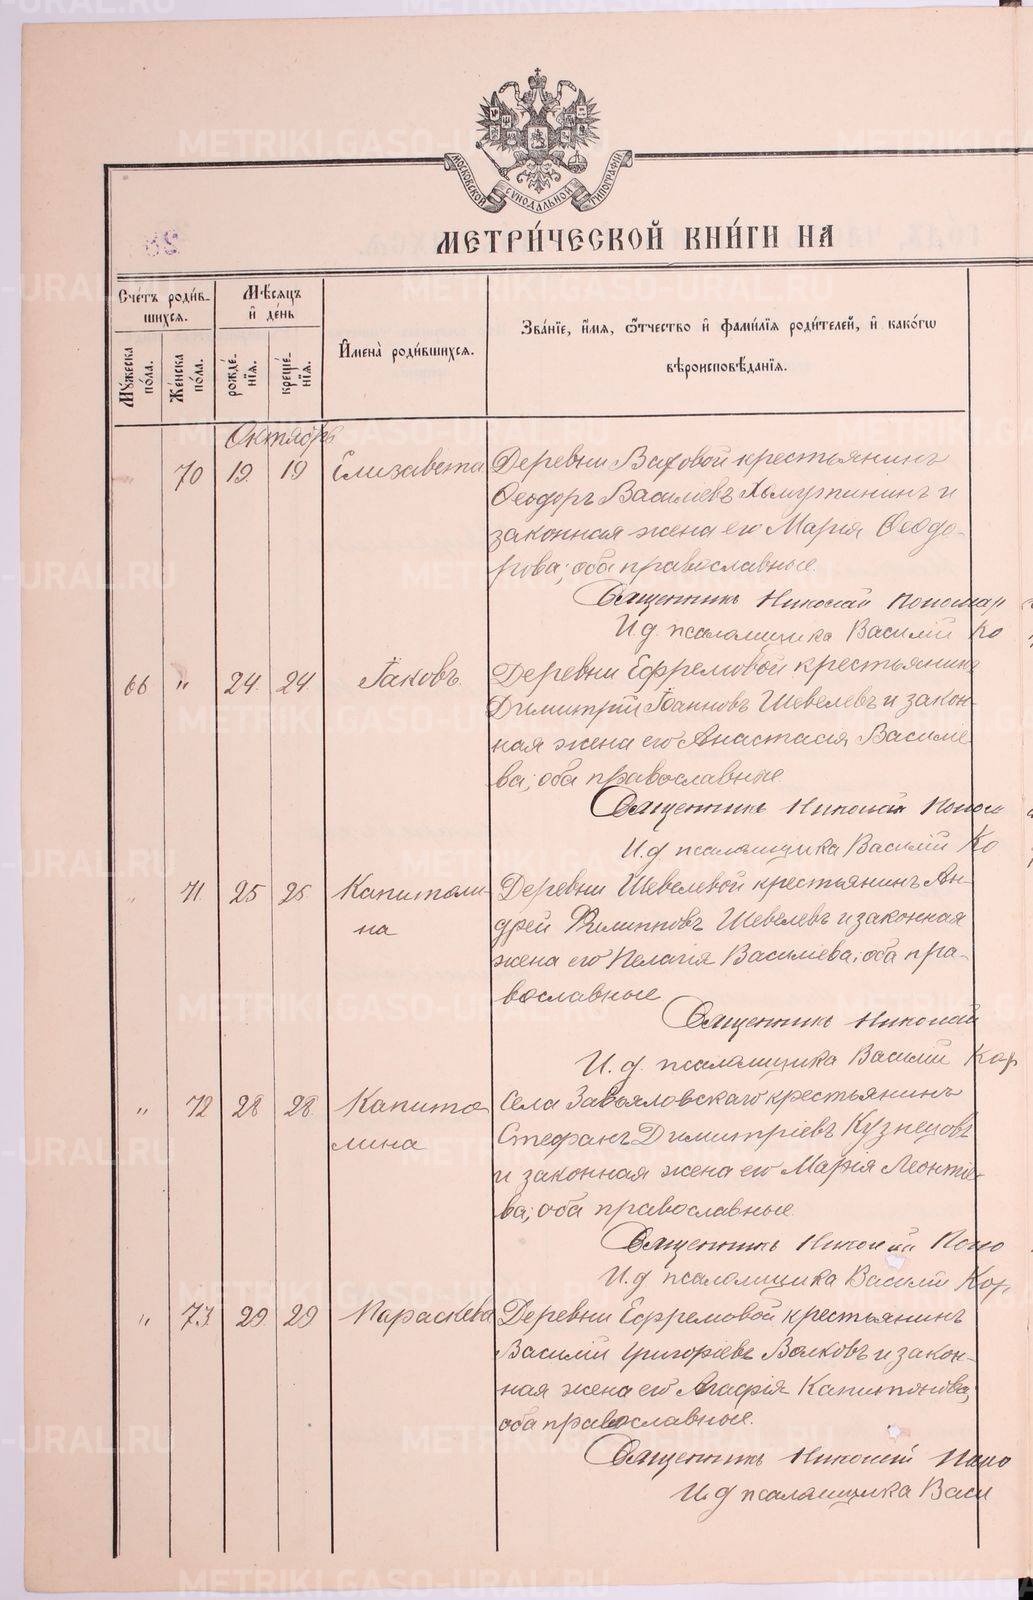 МОСКОВСКОЙ СѴНОДАЛЬНОЙ ТИПОГРАФІИ
МЕТРИ́ЧЕСКОЙ КНИ́ГИ НА
Сче́тъ роди́в-
шихсѧ.
Мѣ́сѧцъ
и҆ де́нь
И҆мена̀ роди́вшихсѧ.
Зва́нїе, и҆́мѧ, ѻ҆́тчество и҆ фами́лїѧ роди́телей, и҆ како́гѡ
вѣроисповѣ́данїѧ.
Мꙋ́жеска
по́ла.
Же́нска
по́ла.
рожде́-
нїѧ.
креще́-
нїѧ.
Октябрь
" 70 19. 19 Елизавета Деревни Ваховой крестьянинъ
Ѳеодоръ Василіевъ Хомутининъ и
законная жена его Марія Ѳеодо-
рова; оба православные.
Священникъ Николай Пономар
И.д. псаломщика Василій Ко
66 " 24. 24. Іаковъ. Деревни Ефремовой крестьянинъ
Димитрій Іоанновъ Шевелевъ и закон-
ная жена его Анастасія Василіе-
ва; оба православные
Священникъ Николай Поном
И.д псаломщика Василій Ко
" 71. 25 25. Капитоли- Деревни Шевелевой крестьянинъ Ан-
на дрей Филипповъ Шевелевъ и законная
жена его Пелагія Василіева; оба пра-
вославные
Священникъ Николай
И.д. псаломщика Василій Кор
" 72 28 28. Капито Села Завьяловскаго крестьянинъ
лина Стефанъ Димитріевъ Кузнецовъ
и законная жена его Марія Леонтіе-
ва; оба православные.
Священникъ Николай Поно
И.д псаломщика Василій Кор
" 73. 29 29 Параскева Деревни Ефремовой крестьянинъ
Василій Григоріевъ Волковъ и закон-
ная жена его Агафія Капитонова;
оба православные.
Священникъ Николай Поно
И.д псаломщика Васи
METRIKI.GASO-URAL.RU